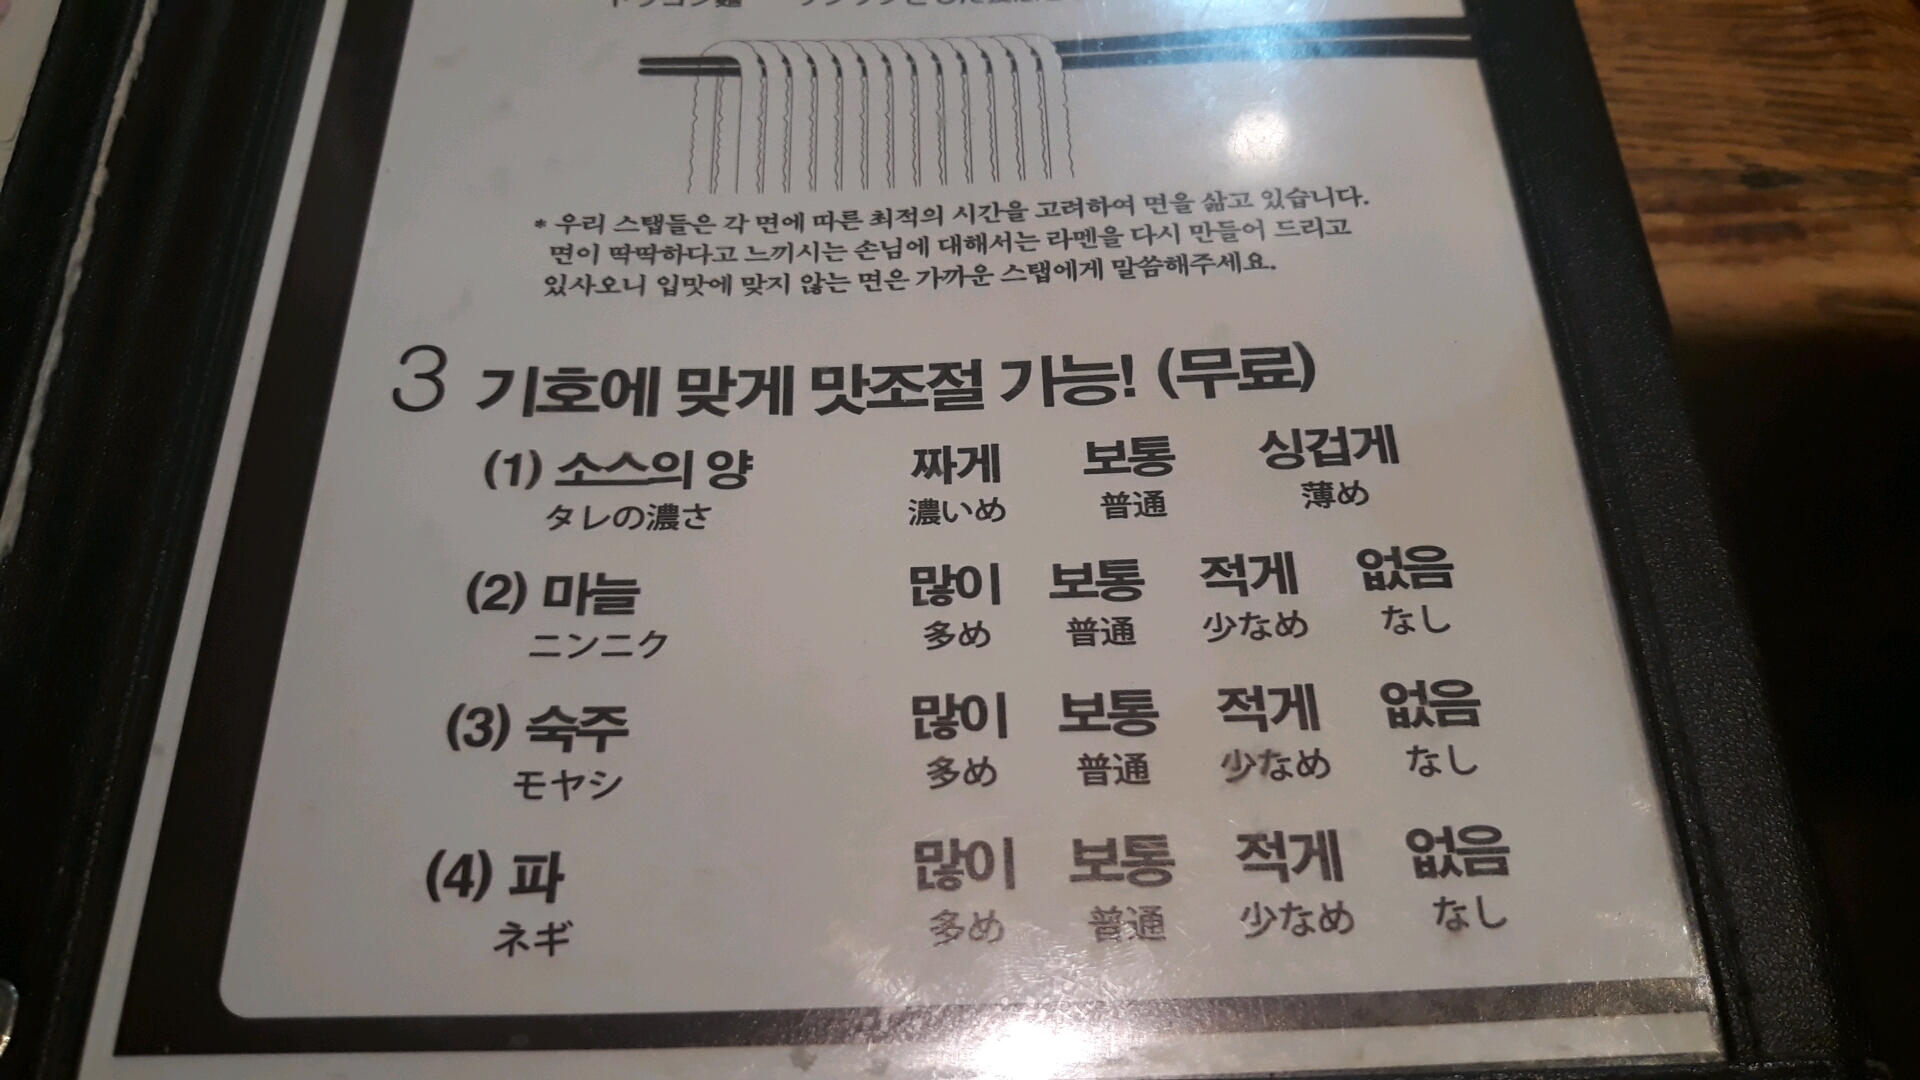 * 우리 스탭들은 각 면에 따른 최적의 시간을 고려하여 면을 삶고 있습니다.
면이 딱딱하다고 느끼시는 손님에 대해서는 라멘을 다시 만들어 드리고
있사오니 입맛에 맞지 않는 면은 가까운 스탭에게 말씀해주세요.
3 기호에 맞게 맛조절 가능! (무료)
(1) 소스의 양 짜게 보통 싱겁게
タレの濃さ 濃いめ 普通 薄め
(2) 마늘 많이 보통 적게 없음
ニンニク 多め 普通 少なめ なし
(3) 숙주 많이 보통 적게 없음
モヤシ 多め 普通 少なめ なし
(4) 파 많이 보통 적게 없음
ネギ 多め 普通 少なめ なし